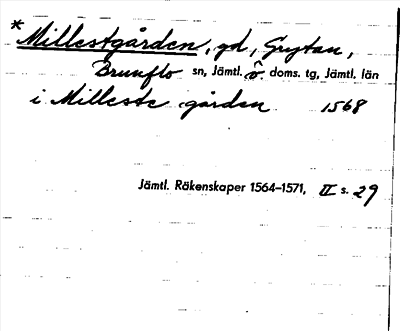 * Millestgården, gd, Grytan,
Brunflo sn, Jämtl. ö. doms. tg, Jämtl. län
i Milleste gården 1568
Jämtl. Räkenskaper 1564–1571, II s. 29